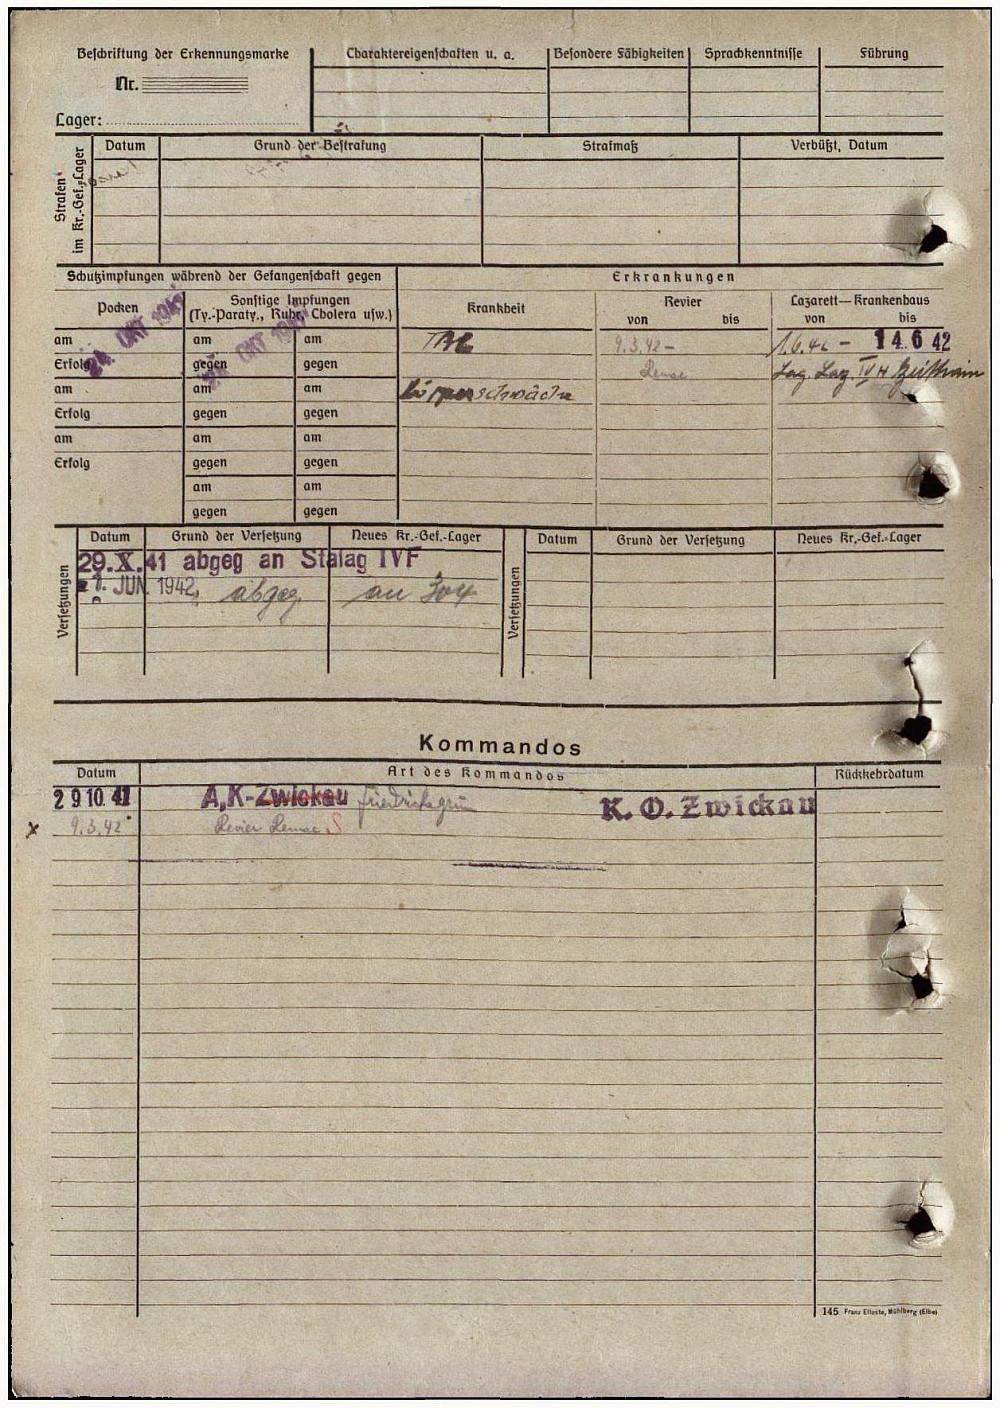 Beschriftung der Erkennungsmarke
Nr.
Lager:
Charaktereigenschaften u. a.
Besondere Fähigkeiten
Sprachkenntnisse
Führung
Strafen im Kr.-Gef.-Lager
Datum
Grund der Bestrafung
Strafmaß
Verbüßt, Datum
Schutzimpfungen während der Gefangenschaft gegen
Erkrankungen
Pocken
Sonstige Impfungen
(Ty.-Paraty., Ruhr, Cholera usw.)
Krankheit
Revier
von bis
Lazarett—Krankenhaus
von bis
24. OKT 1941
OKT 1941
am am am
9.3.42 -
1.6.42 - 14.6 42
Erfolg gegen gegen
Lag. Laz. IV H Zeithain
am am am
Körperschwäche
Erfolg gegen gegen
am am am
Erfolg gegen gegen
am am
gegen gegen
Versetzungen
Datum
Grund der Versetzung
Neues Kr.-Gef.-Lager
Versetzungen
Datum
Grund der Versetzung
Neues Kr.-Gef.-Lager
29.X.41 abgeg an Stalag IVF
JUN 1942 abgeg. an 304
Kommandos
Datum
Art des Kommandos
Rückkehrdatum
29 10. 41 A,K-Zwickau Friedrichsgrün K. O. Zwickau
x 9.3.42 Revier S
145 Franz Elteste, Mühlberg (Elbe)